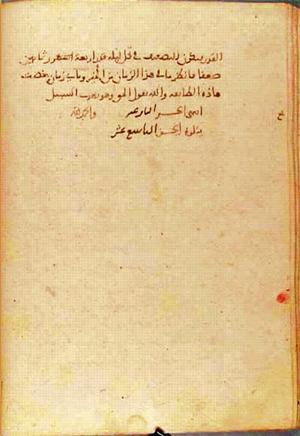 القدر التضعيف في كل ليلة قدر اربعة اشهر وثمانين
ضعفا فانظر ما في هذا الزمان من الخير وباي زمان خصت
هاذه الطائفة والله يقول الحق وهو يهدي السبيل
انتهى الجزء الثامن عشر والحمد لله
يتلوه الجزء التاسع عشر